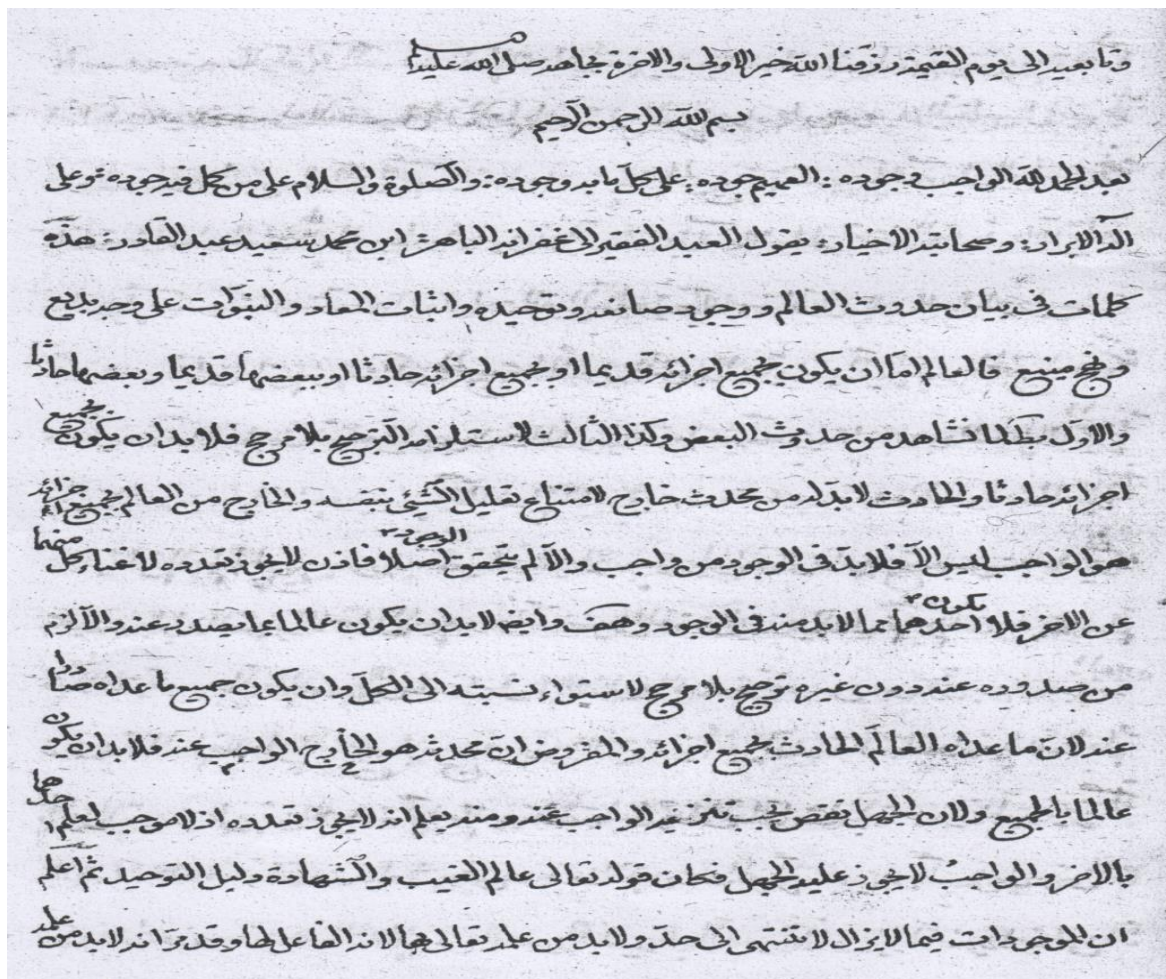 وتابعيه الى يوم القيمة رزقنا الله خير الاولى والاخرة بجاهه صلى الله عليه وسلم
بسم الله الرحمن الرحيم
بعد الحمد لله الواجب وجوده العميم جوده على كل ما به وجوده والصلوة والسلام على من كمل فيه جوده وعلى
آله الابرار وصحابته الاخيار يقول العبد الفقير الى غفرانه الباهر ابن محمد سعيد عبد القادر هذه
كلمات في بيان حدوث العالم ووجود صانعه وتوحيده واثبات المعاد والنبوات على وجه بديع
ونهج منيع فالعالم اما ان يكون بجميع اجزائه قديما او بجميع اجزائه حادثا او ببعضها قديما وبعضها حادثا
والاول بط لما نشاهد من حدوث البعض وكذا الثالث لاستلزامه الترجيح بلا مرجح فلا بد ان يكون بجميع
اجزائه حادثا والحادث لا بد له من محدث خارج لامتناع تعليل الشيئ بنفسه والخارج من العالم بجميع اجزائه
هو الواجب ليس الا فلا بد في الوجود من واجب والا لم يتحقق الوجود اصلا فاذن لا يجوز تعدده لاغناء كل منهما
عن الاخر فلا يكون احدهما مما لا بد منه في الوجود وهف وايضا لا بد ان يكون عالما بما يصدر عنه والا لزم
من صدوره عنه دون غيره ترجيح بلا مرجح لاستواء نسبته الى الكل وان يكون جميع ما عداه صادرا
عنه لان ما عداه العالم الحادث بجميع اجزائه والمفروض ان محدثه هو الخارج الواجب عنه فلا بد ان يكون
عالما بالجميع ولان الجهل نقص يجب تنزيه الواجب عنه ومنه يعلم انه لا يجوز تعدده اذ لا موجب لعلم احدهما
بالاخر والواجب لا يجوز عليه الجهل فكان قوله تعالى عالم الغيب والشهادة دليل التوحيد ثم اعلم
ان الموجودات فيما لا يزال لا تنتهى الى حد ولا بد من علمه تعالى بها لانه الفاعل لها وقد مر انه لا بد من علمه